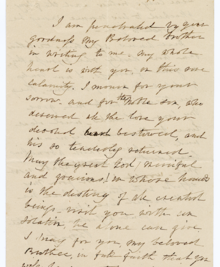 I am penetrated by your
goodness My Beloved Brother
in writing to me, my whole
heart is with you, in this sore
calamity, I mourn for your
sorrow, and for the noble son, who
deserved all the love your
bestowed, and
his so tenderly returned.
May the great God, merciful
and gracious, in whose hands
is the destiny of all created
beings, visit you with con
solation he alone can give,
I pray for you, my Beloved
Brother, in full faith that you